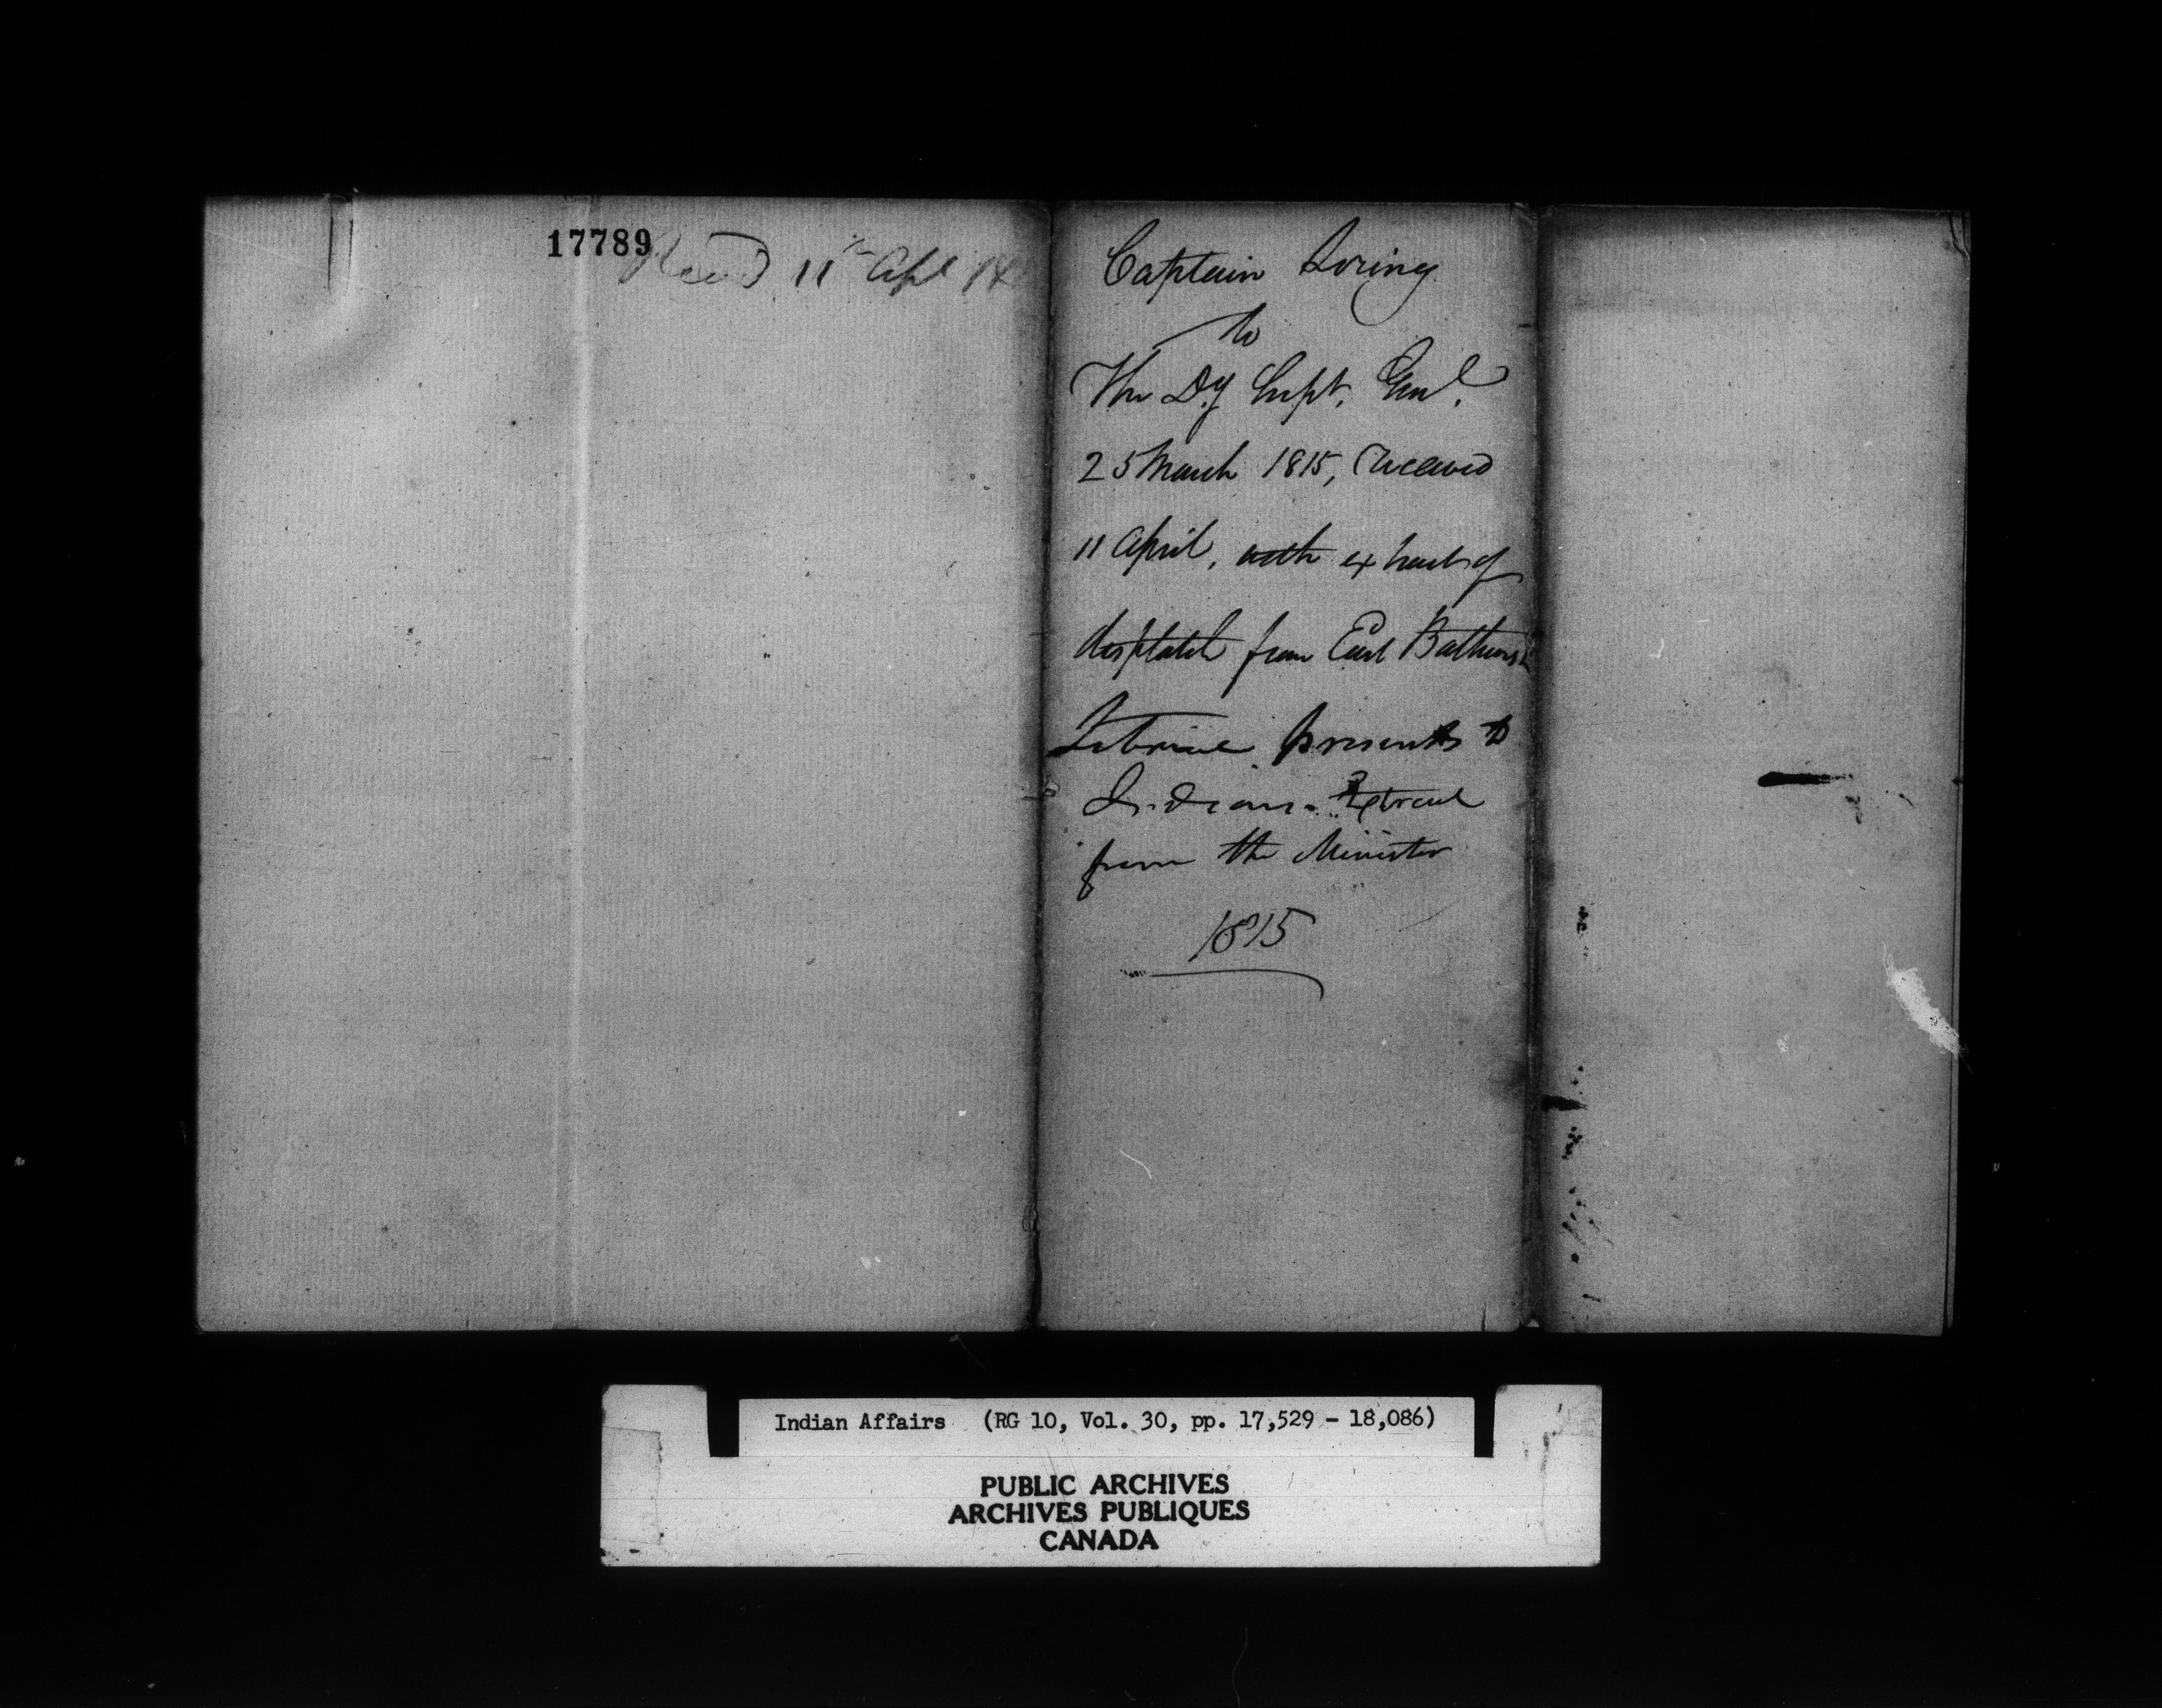 17789
Recd 11th Apl
Captain Loring
to
The Dy Supt. Genl.
25 March 1815, received
11 April, with extract of
despatch from Earl Bathurst
presents to
Indians. Extract
from the Minister
1815
Indian Affairs (RG 10, Vol. 30, pp. 17,529 - 18,086)
PUBLIC ARCHIVES
ARCHIVES PUBLIQUES
CANADA